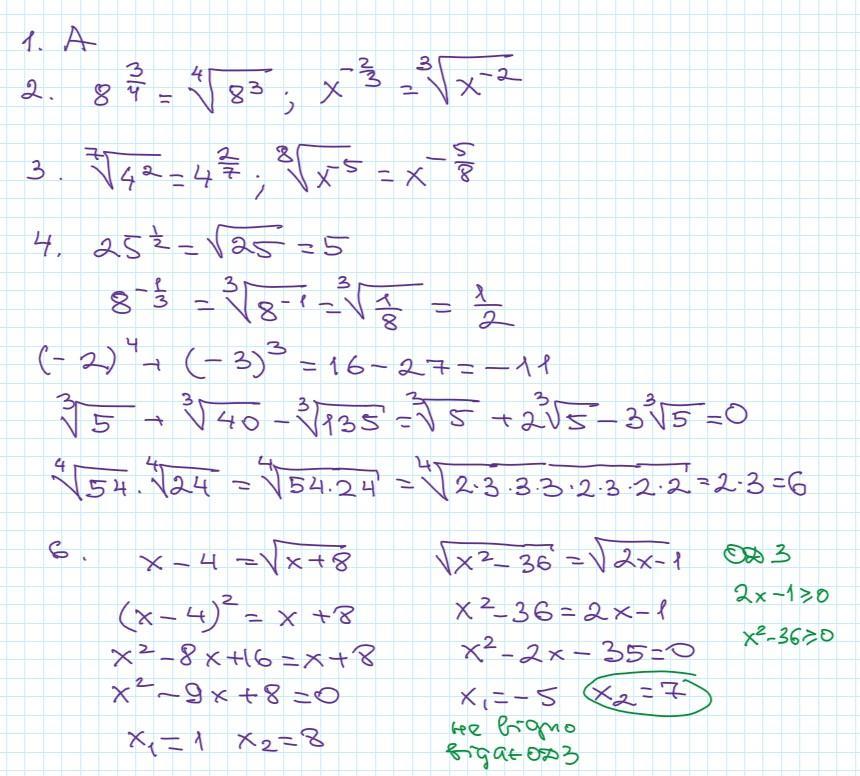 1. A
2. 8^{3/4} = ∜(8^3) ; x^{-2/3} = ∛(x^{-2})
3. ⁷√(4^2) = 4^{2/7} ; ⁸√(x^{-5}) = x^{-5/8}
4. 25^{1/2} = √25 = 5
8^{-1/3} = ∛(8^{-1}) = ∛(1/8) = 1/2
(-2)^4 + (-3)^3 = 16 - 27 = -11
∛5 + ∛40 - ∛135 = ∛5 + 2∛5 - 3∛5 = 0
∜54 · ∜24 = ∜(54·24) = ∜(2·3·3·3·2·3·2·2) = 2·3 = 6
6. x - 4 = √(x+8)
(x-4)^2 = x + 8
x^2 - 8x + 16 = x + 8
x^2 - 9x + 8 = 0
x_1 = 1 x_2 = 8
√(x^2 - 36) = √(2x-1)
x^2 - 36 = 2x - 1
x^2 - 2x - 35 = 0
x_1 = -5 x_2 = 7
не
ОДЗ
ОДЗ
2x - 1 ≥ 0
x^2 - 36 ≥ 0